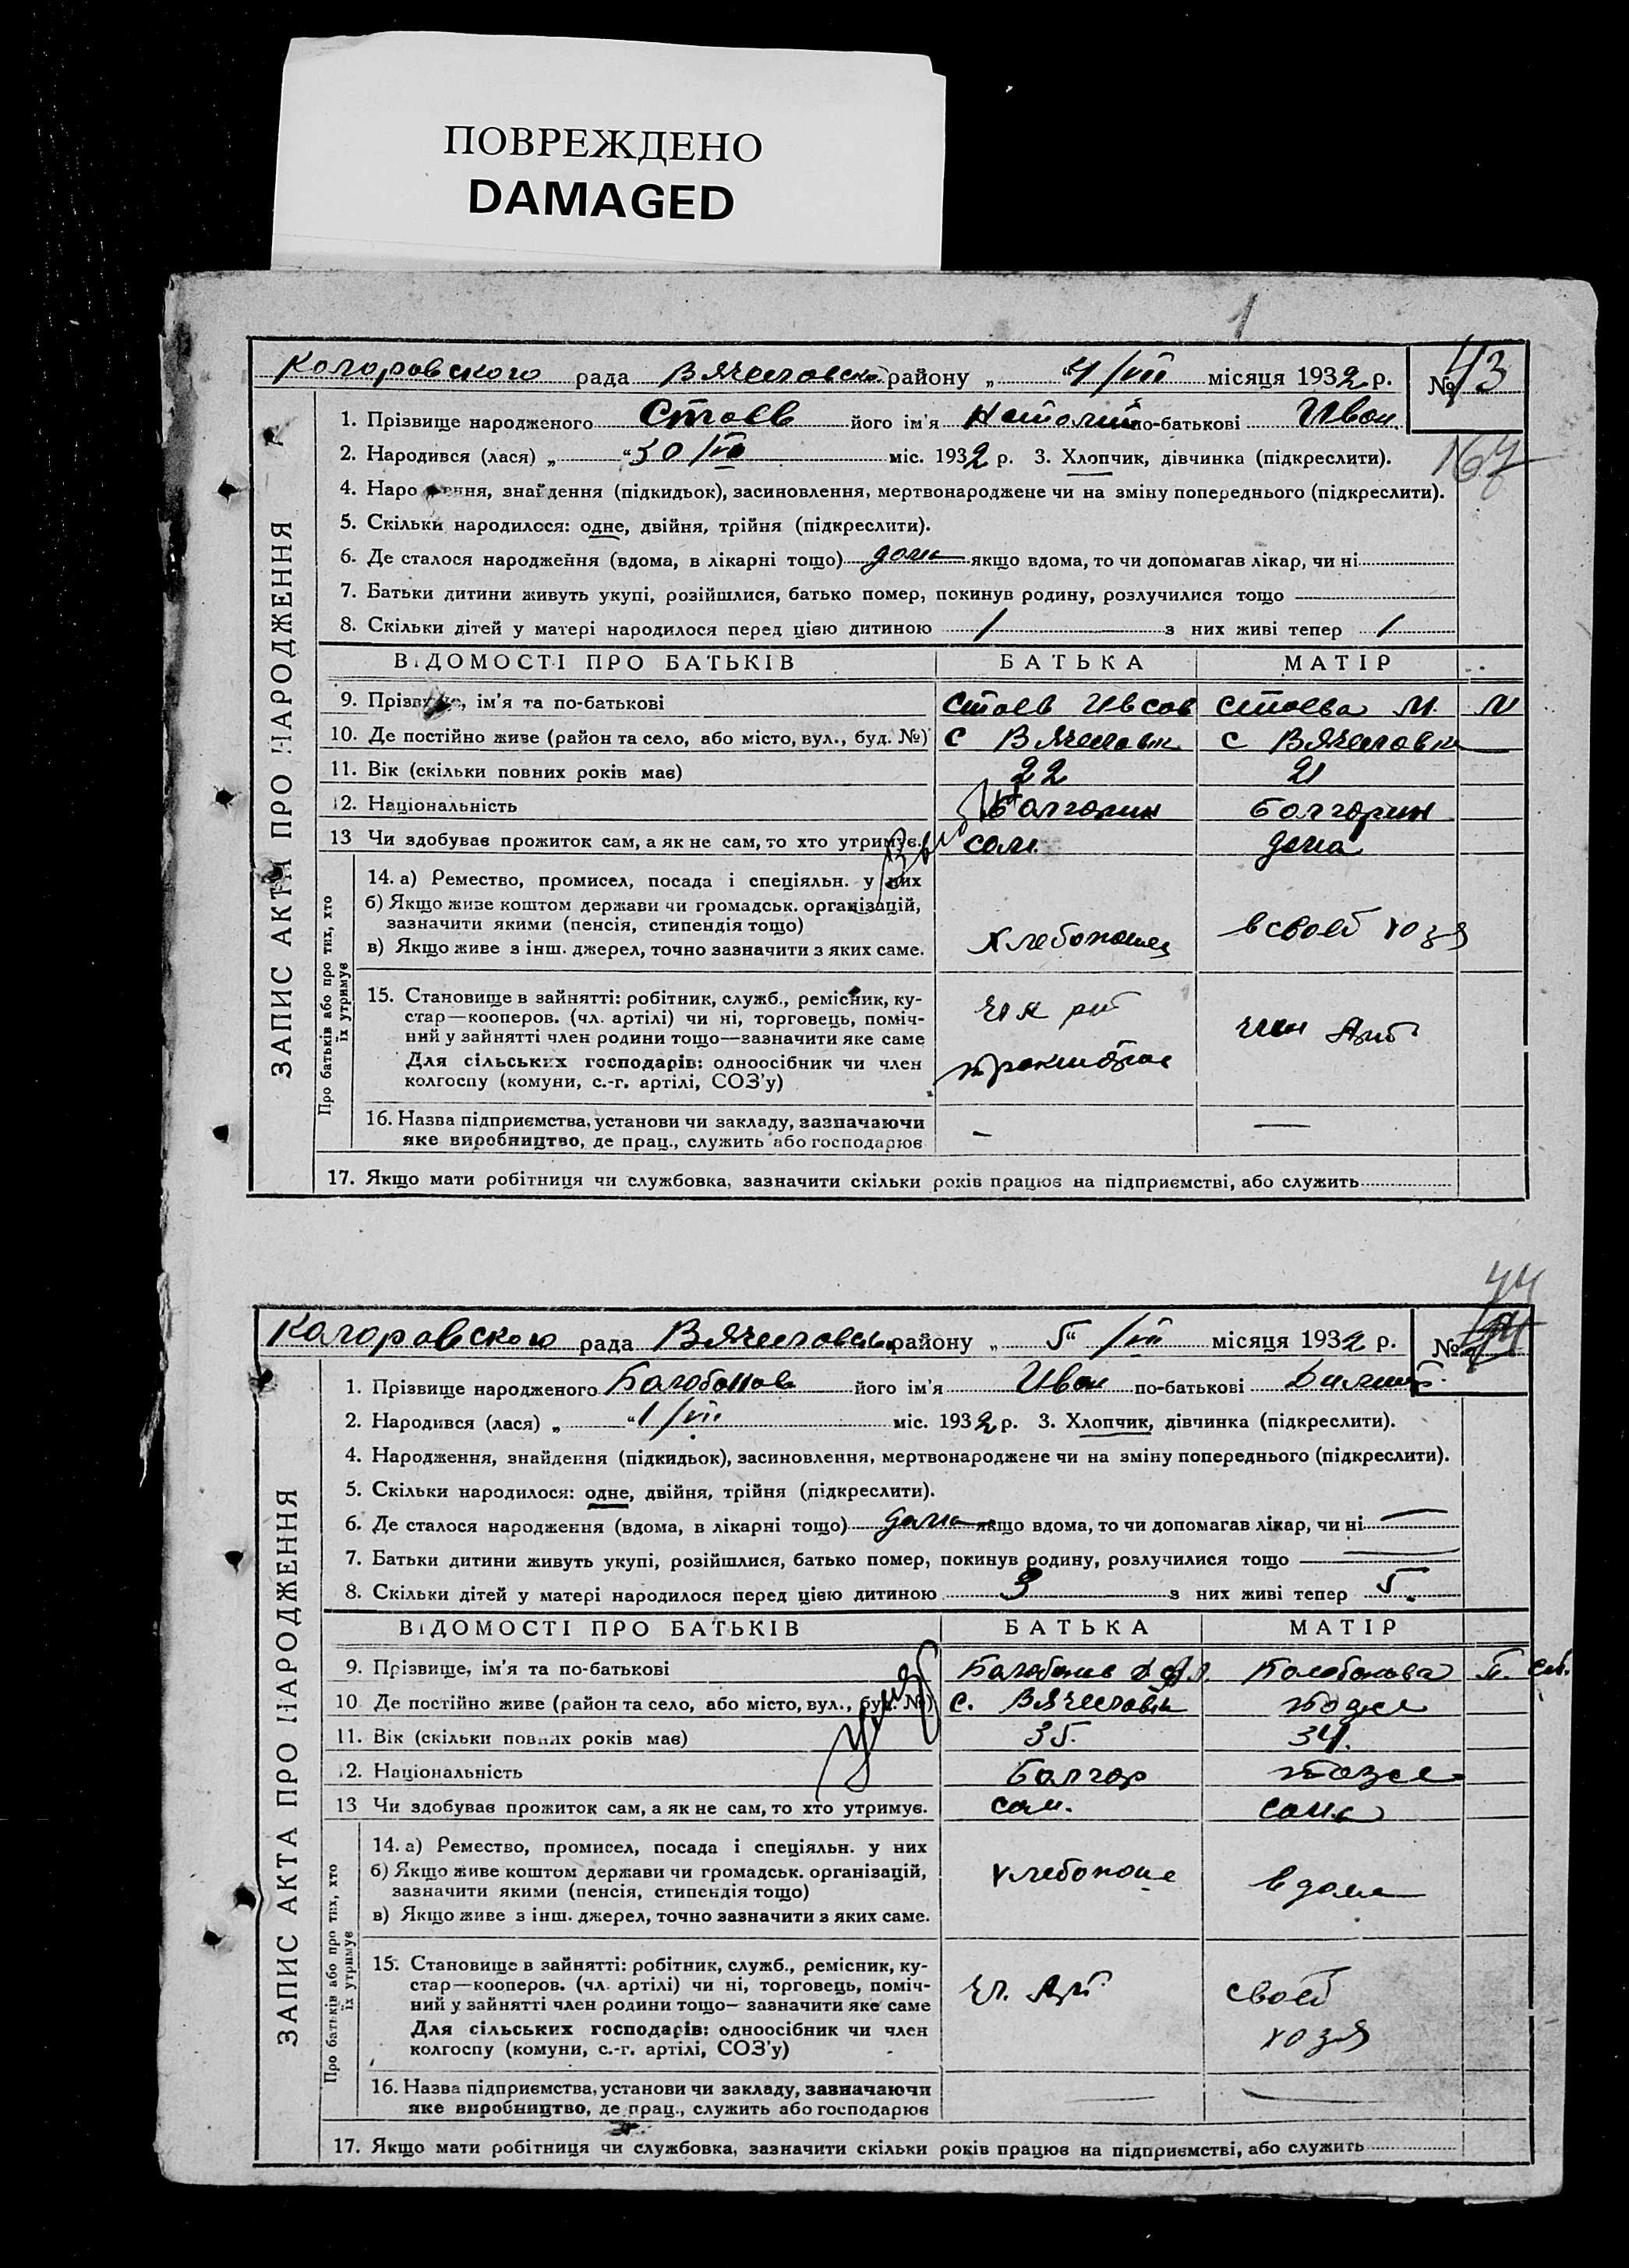 ПОВРЕЖДЕНО
DAMAGED
1
рада району „ 4/VII місяця 1932 р. № 43
1. Прізвище народженого Стоев його ім'я по-батькові Иван.
167
2. Народився (лася) „ “ 30/VI міс. 1932 р. 3. Хлопчик, дівчинка (підкреслити).
4. Народження, знайдення (підкидьок), засиновлення, мертвонароджене чи на зміну попереднього (підкреслити).
5. Скільки народилося: одне, двійня, трійня (підкреслити).
6. Де сталося народження (вдома, в лікарні тощо) дома якщо вдома, то чи допомагав лікар, чи ні
7. Батьки дитини живуть укупі, розійшлися, батько помер, покинув родину, розлучилися тощо
8. Скільки дітей у матері народилося перед цією дитиною 1 з них живі тепер 1
ЗАПИС АКТА ПРО НАРОДЖЕННЯ
ВІДОМОСТІ ПРО БАТЬКІВ БАТЬКА МАТІР
9. Прізвище, ім'я та по-батькові Стоев Стоева М. И
10. Де постійно живе (район та село, або місто, вул., буд. №) с с
11. Вік (скільки повних років має) 22 21
12. Національність Болгарин Болгарин
13 Чи здобуває прожиток сам, а як не сам, то хто утримує. сам. дома
Про батьків або про тих, хто їх утримує
14. а) Ремество, промисел, посада і спеціяльн. у них
б) Якщо живе коштом держави чи громадськ. організацій,
зазначити якими (пенсія, стипендія тощо)
в) Якщо живе з інш. джерел, точно зазначити з яких саме.
в своей хозя
15. Становище в зайнятті: робітник, служб., ремісник, ку-
стар—кооперов. (чл. артілі) чи ні, торговець, поміч-
ний у зайнятті член родини тощо—зазначити яке саме
Для сільських господарів: одноосібник чи член
колгоспу (комуни, с.-г. артілі, СОЗ'у)
16. Назва підприємства, установи чи закладу, зазначаючи — —
яке виробництво, де прац., служить або господарює
17. Якщо мати робітниця чи службовка, зазначити скільки років працює на підприємстві, або служить
44
рада району „ 5“ /VII місяця 1932 р. №
1. Прізвище народженого його ім'я Иван по-батькові
2. Народився (лася) „ “ 1/VII міс. 1932 р. 3. Хлопчик, дівчинка (підкреслити).
4. Народження, знайдення (підкидьок), засиновлення, мертвонароджене чи на зміну попереднього (підкреслити).
5. Скільки народилося: одне, двійня, трійня (підкреслити).
6. Де сталося народження (вдома, в лікарні тощо) дома якщо вдома, то чи допомагав лікар, чи ні —
7. Батьки дитини живуть укупі, розійшлися, батько помер, покинув родину, розлучилися тощо —
8. Скільки дітей у матері народилося перед цією дитиною 3 з них живі тепер 5
ЗАПИС АКТА ПРО НАРОДЖЕННЯ
ВІДОМОСТІ ПРО БАТЬКІВ БАТЬКА МАТІР
9. Прізвище, ім'я та по-батькові
10 Де постійно живе (район та село, або місто, вул., буд. №) с. тоже
11. Вік (скільки повних років має) 35. 34.
12. Національність Болгар тоже
13 Чи здобуває прожиток сам, а як не сам, то хто утримує. сам. сама
Про батьків або про тих, хто їх утримує
14. а) Ремество, промисел, посада і спеціяльн. у них
б) Якщо живе коштом держави чи громадськ. організацій,
зазначити якими (пенсія, стипендія тощо)
в) Якщо живе з інш. джерел, точно зазначити з яких саме.
в доме
15. Становище в зайнятті: робітник, служб., ремісник, ку-
стар—кооперов. (чл. артілі) чи ні, торговець, поміч-
ний у зайнятті член родини тощо— зазначити яке саме
Для сільських господарів: одноосібник чи член
колгоспу (комуни, с.-г. артілі, СОЗ'у)
чл. Арт
своей
хозя
16. Назва підприємства, установи чи закладу, зазначаючи — —
яке виробництво, де прац., служить або господарює
17. Якщо мати робітниця чи службовка, зазначити скільки років працює на підприємстві, або служить